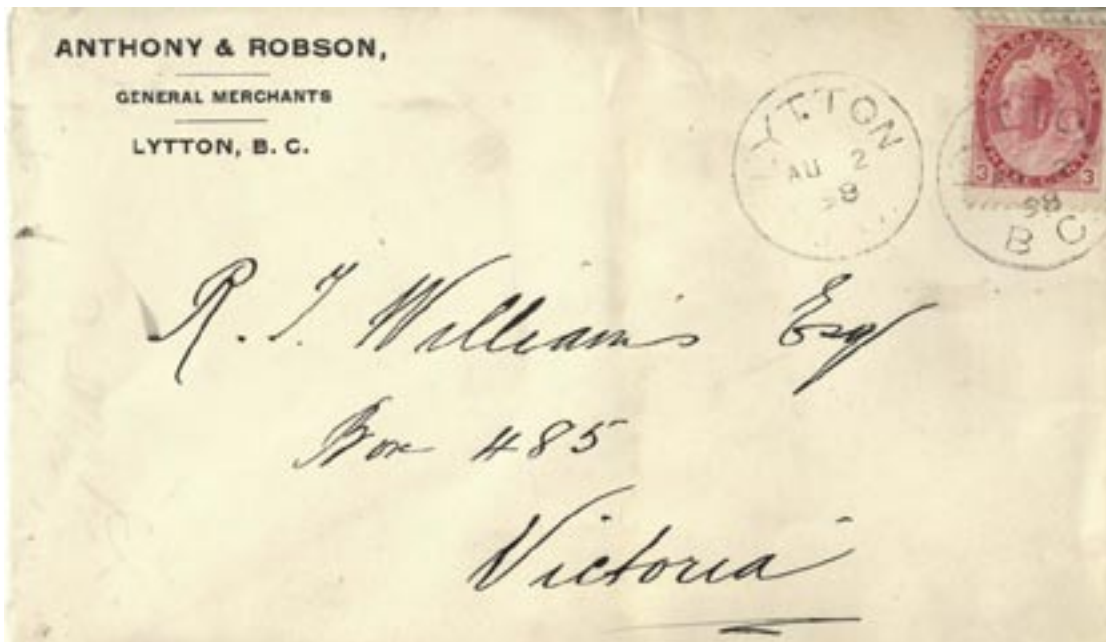 ANTHONY & ROBSON,
GENERAL MERCHANTS
LYTTON, B. C.
LYTTON
AU 2
98
CANADA POSTAGE
3 3
98
B C
R. T. Williams Esq
Box 485
Victoria